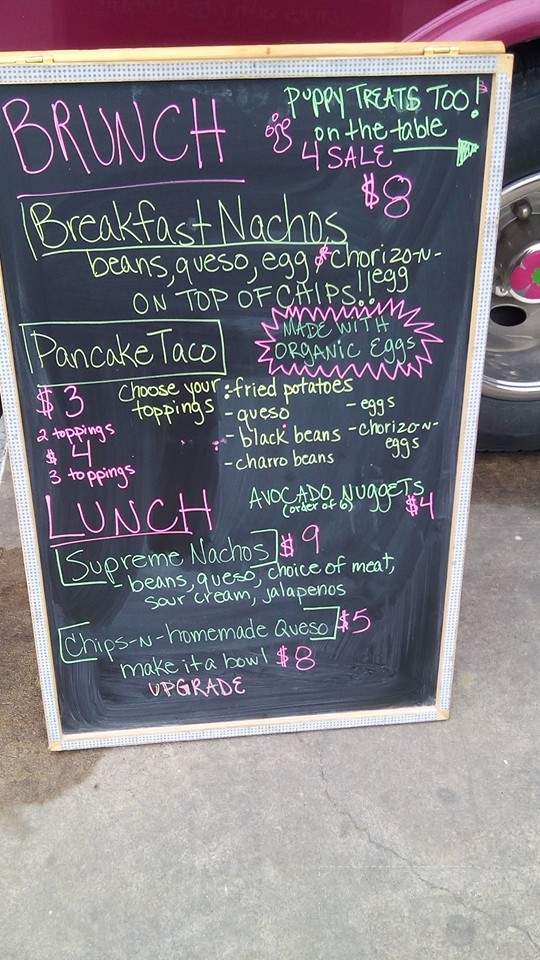 BRUNCH
PUPPY TREATS TOO!
on the table
4 SALE
$8
Breakfast Nachos
beans, queso, egg or chorizo-n-egg
ON TOP OF CHIPS!!
MADE WITH
ORGANIC EGGS
Pancake Taco
$3
2 toppings
$4
3 toppings
Choose your toppings:
- fried potatoes
- queso
- black beans
- charro beans
- eggs
- chorizo-n-
eggs
LUNCH
AVOCADO NUGGETS
(order of 6)
$4
Supreme Nachos $9
beans, queso, choice of meat,
sour cream, jalapenos
Chips-N-homemade Queso $5
make it a bowl $8
UPGRADE